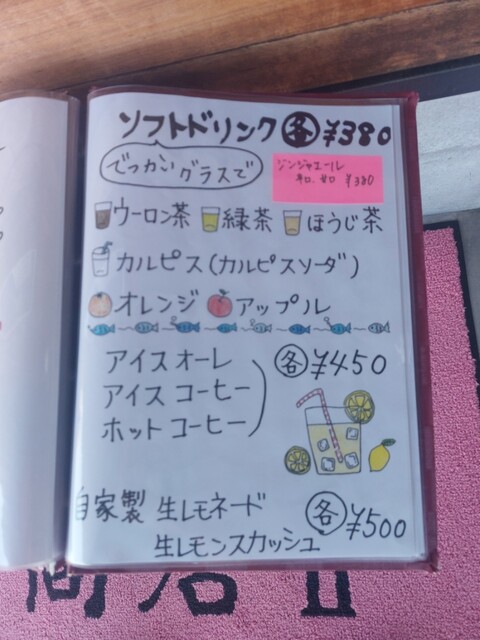 ソフトドリンク 各 ¥380
でっかいグラスで
ジンジャエール
¥380
ウーロン茶 緑茶 ほうじ茶
カルピス(カルピスソーダ)
オレンジ アップル
アイスオーレ
アイスコーヒー
ホットコーヒー
各 ¥450
自家製 生レモネード
生レモンスカッシュ
各 ¥500